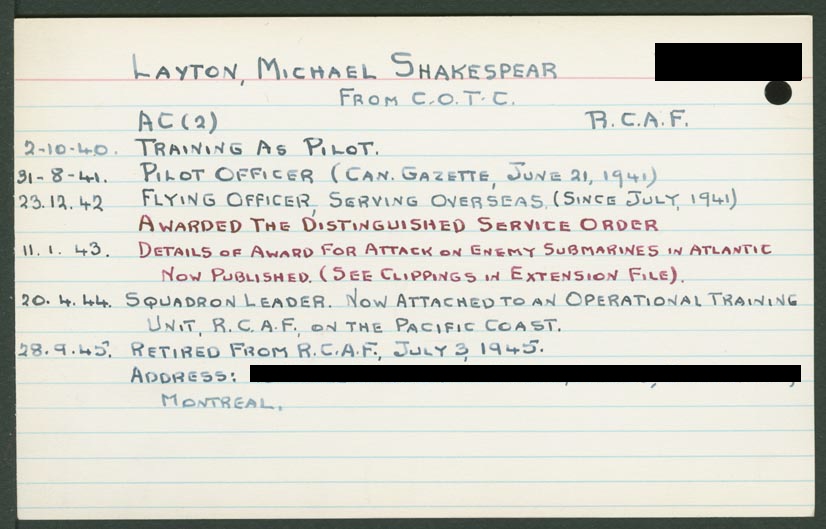 LAYTON, MICHAEL SHAKESPEAR
FROM C.O.T.C.
AC(2) R.C.A.F.
2-10-40. TRAINING AS PILOT.
31-8-41. PILOT OFFICER (CAN. GAZETTE, JUNE 21, 1941)
23.12.42 FLYING OFFICER, SERVING OVERSEAS. (SINCE JULY, 1941)
AWARDED THE DISTINGUISHED SERVICE ORDER
11.1.43. DETAILS OF AWARD FOR ATTACK ON ENEMY SUBMARINES IN ATLANTIC
NOW PUBLISHED. (SEE CLIPPINGS IN EXTENSION FILE).
20.4.44. SQUADRON LEADER. NOW ATTACHED TO AN OPERATIONAL TRAINING
UNIT, R.C.A.F., ON THE PACIFIC COAST.
28.9.45. RETIRED FROM R.C.A.F., JULY 3, 1945.
ADDRESS:
MONTREAL.